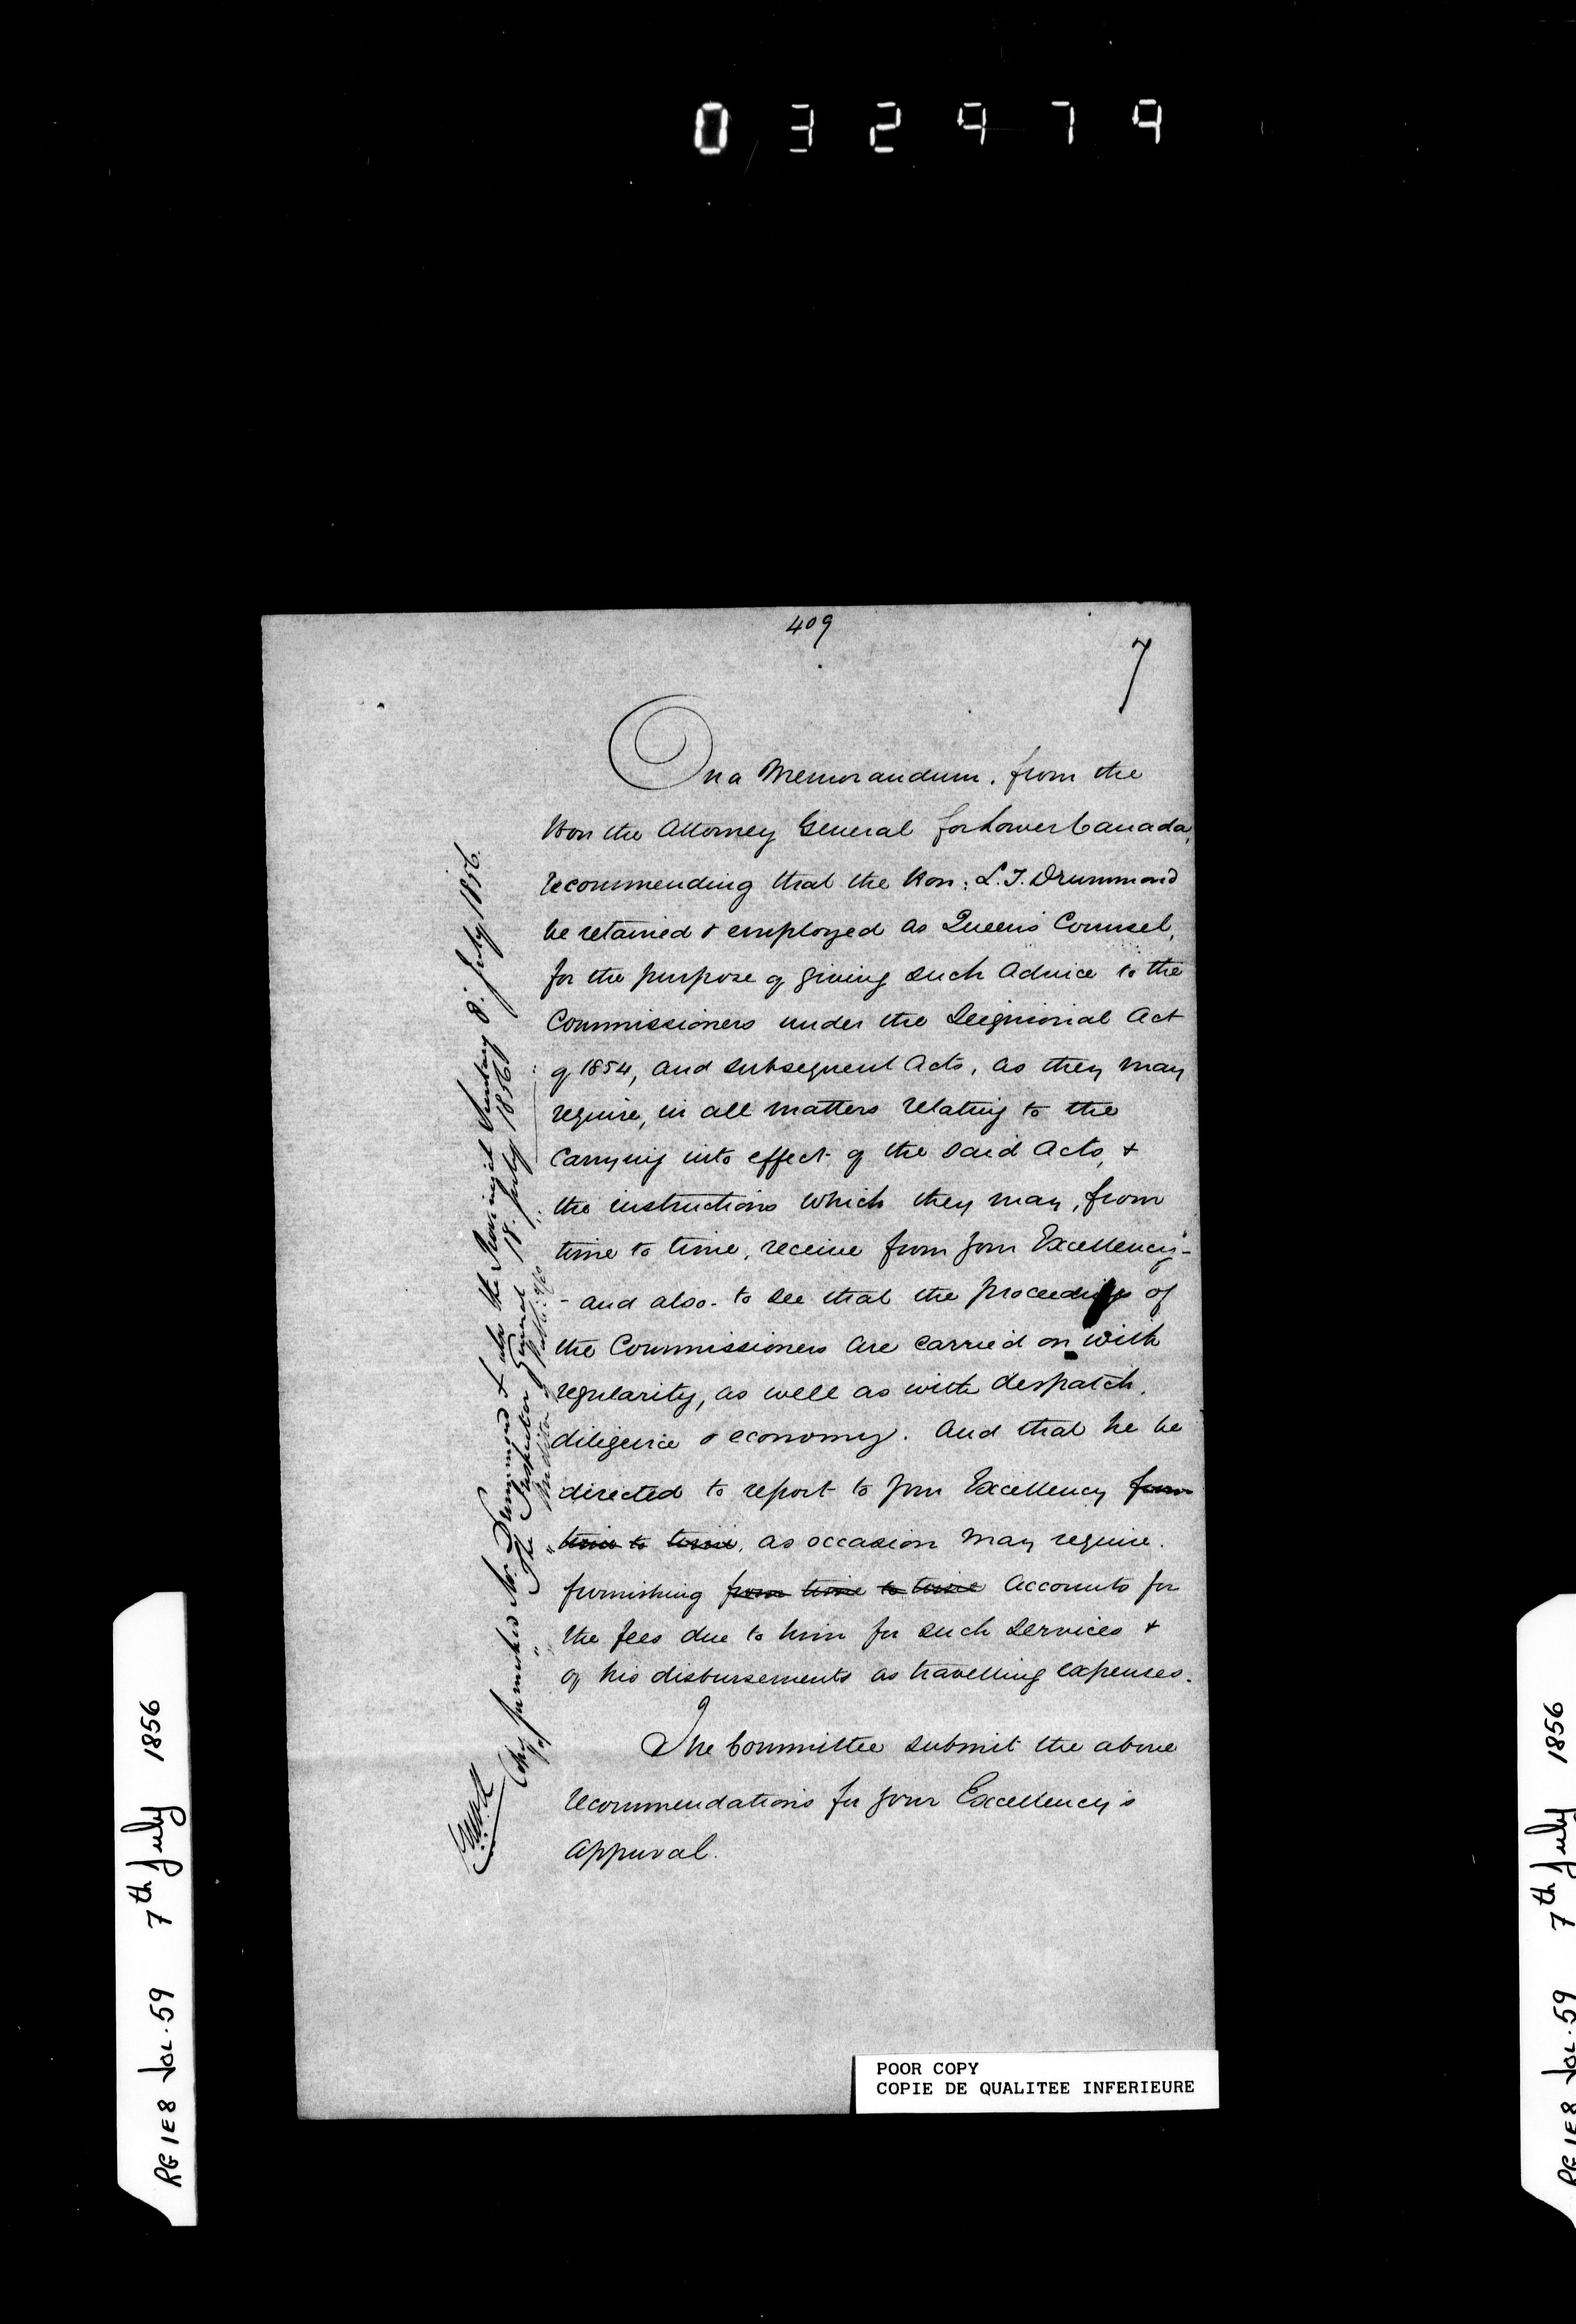 032979
409
7
On a Memorandum, from the
Hon the Attorney General for Lower Canada,
recommending that the Hon: L. T. Drummond
be retained & employed as Queen's Counsel,
for the purpose of giving such advice to the
Commissioners under the Seignorial Act
of 1854, and subsequent Acts, as they may
require, in all matters relating to the
carrying into effect of the said Acts, &
the instructions which they may, from
time to time, receive from your Excellency -
- and also - to see that the proceedings of
the Commissioners are carried on with
regularity, as well as with despatch,
diligence & economy. And that he be
directed to report to your Excellency from
time to time, as occasion may require.
furnishing from time to time accounts for
the fees due to him for such services &
of his disbursements as travelling expenses.
The Committee submit the above
recommendations for your Excellency's
approval.
Copy furnished Mr. Drummond & also the Provincial Secretary 8: July 1856.
" " The Inspector General 18. July 1856
" " Auditor of Public "
RG 1 E8 VOL. 59 7th July 1856
RG 1 E8 VOL. 59 7th July 1856
POOR COPY
COPIE DE QUALITEE INFERIEURE